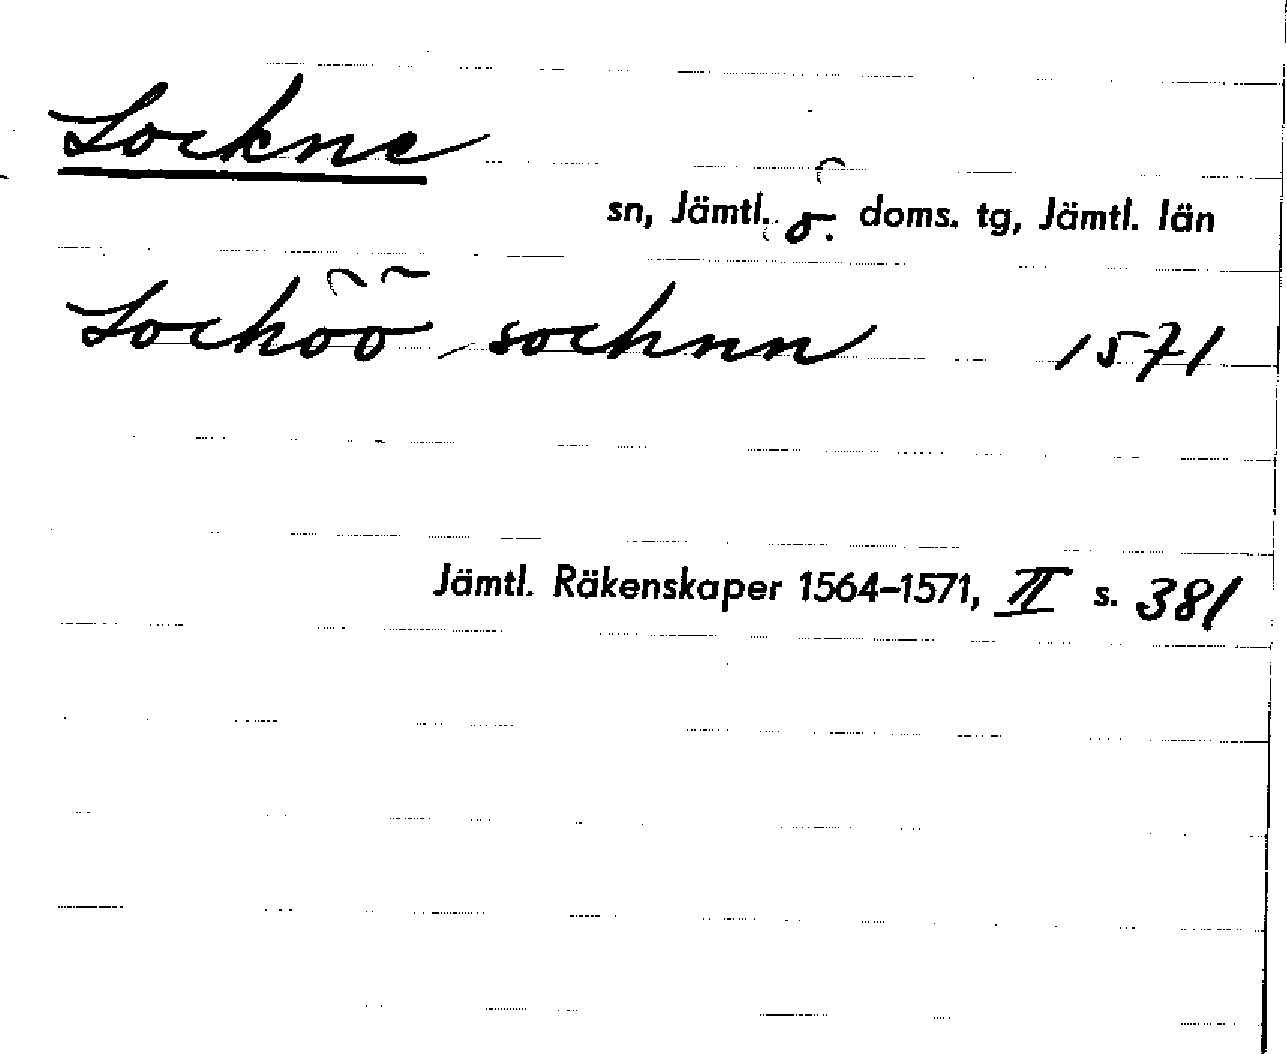 Lockne
sn, Jämtl. ö. doms. tg, Jämtl. län
Locköö sochnn 1571
Jämtl. Räkenskaper 1564–1571, II s. 381